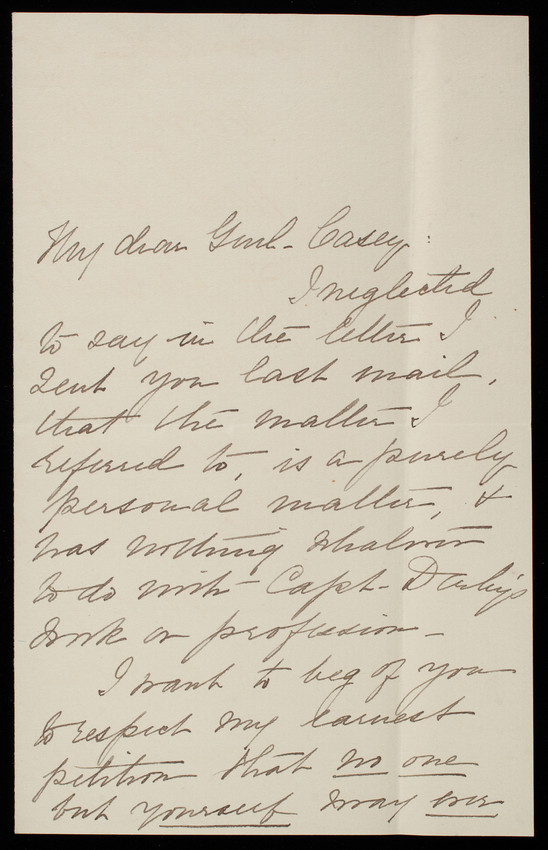 My dear Genl. Casey:
I neglected
to say in the letter I
sent you last mail,
that the matter I
referred to, is a purely
personal matter, &
has nothing whatever
to do with Capt. Derby's
work or profession.
I want to beg of you
to respect my earnest
petition that no one
but yourself may ever